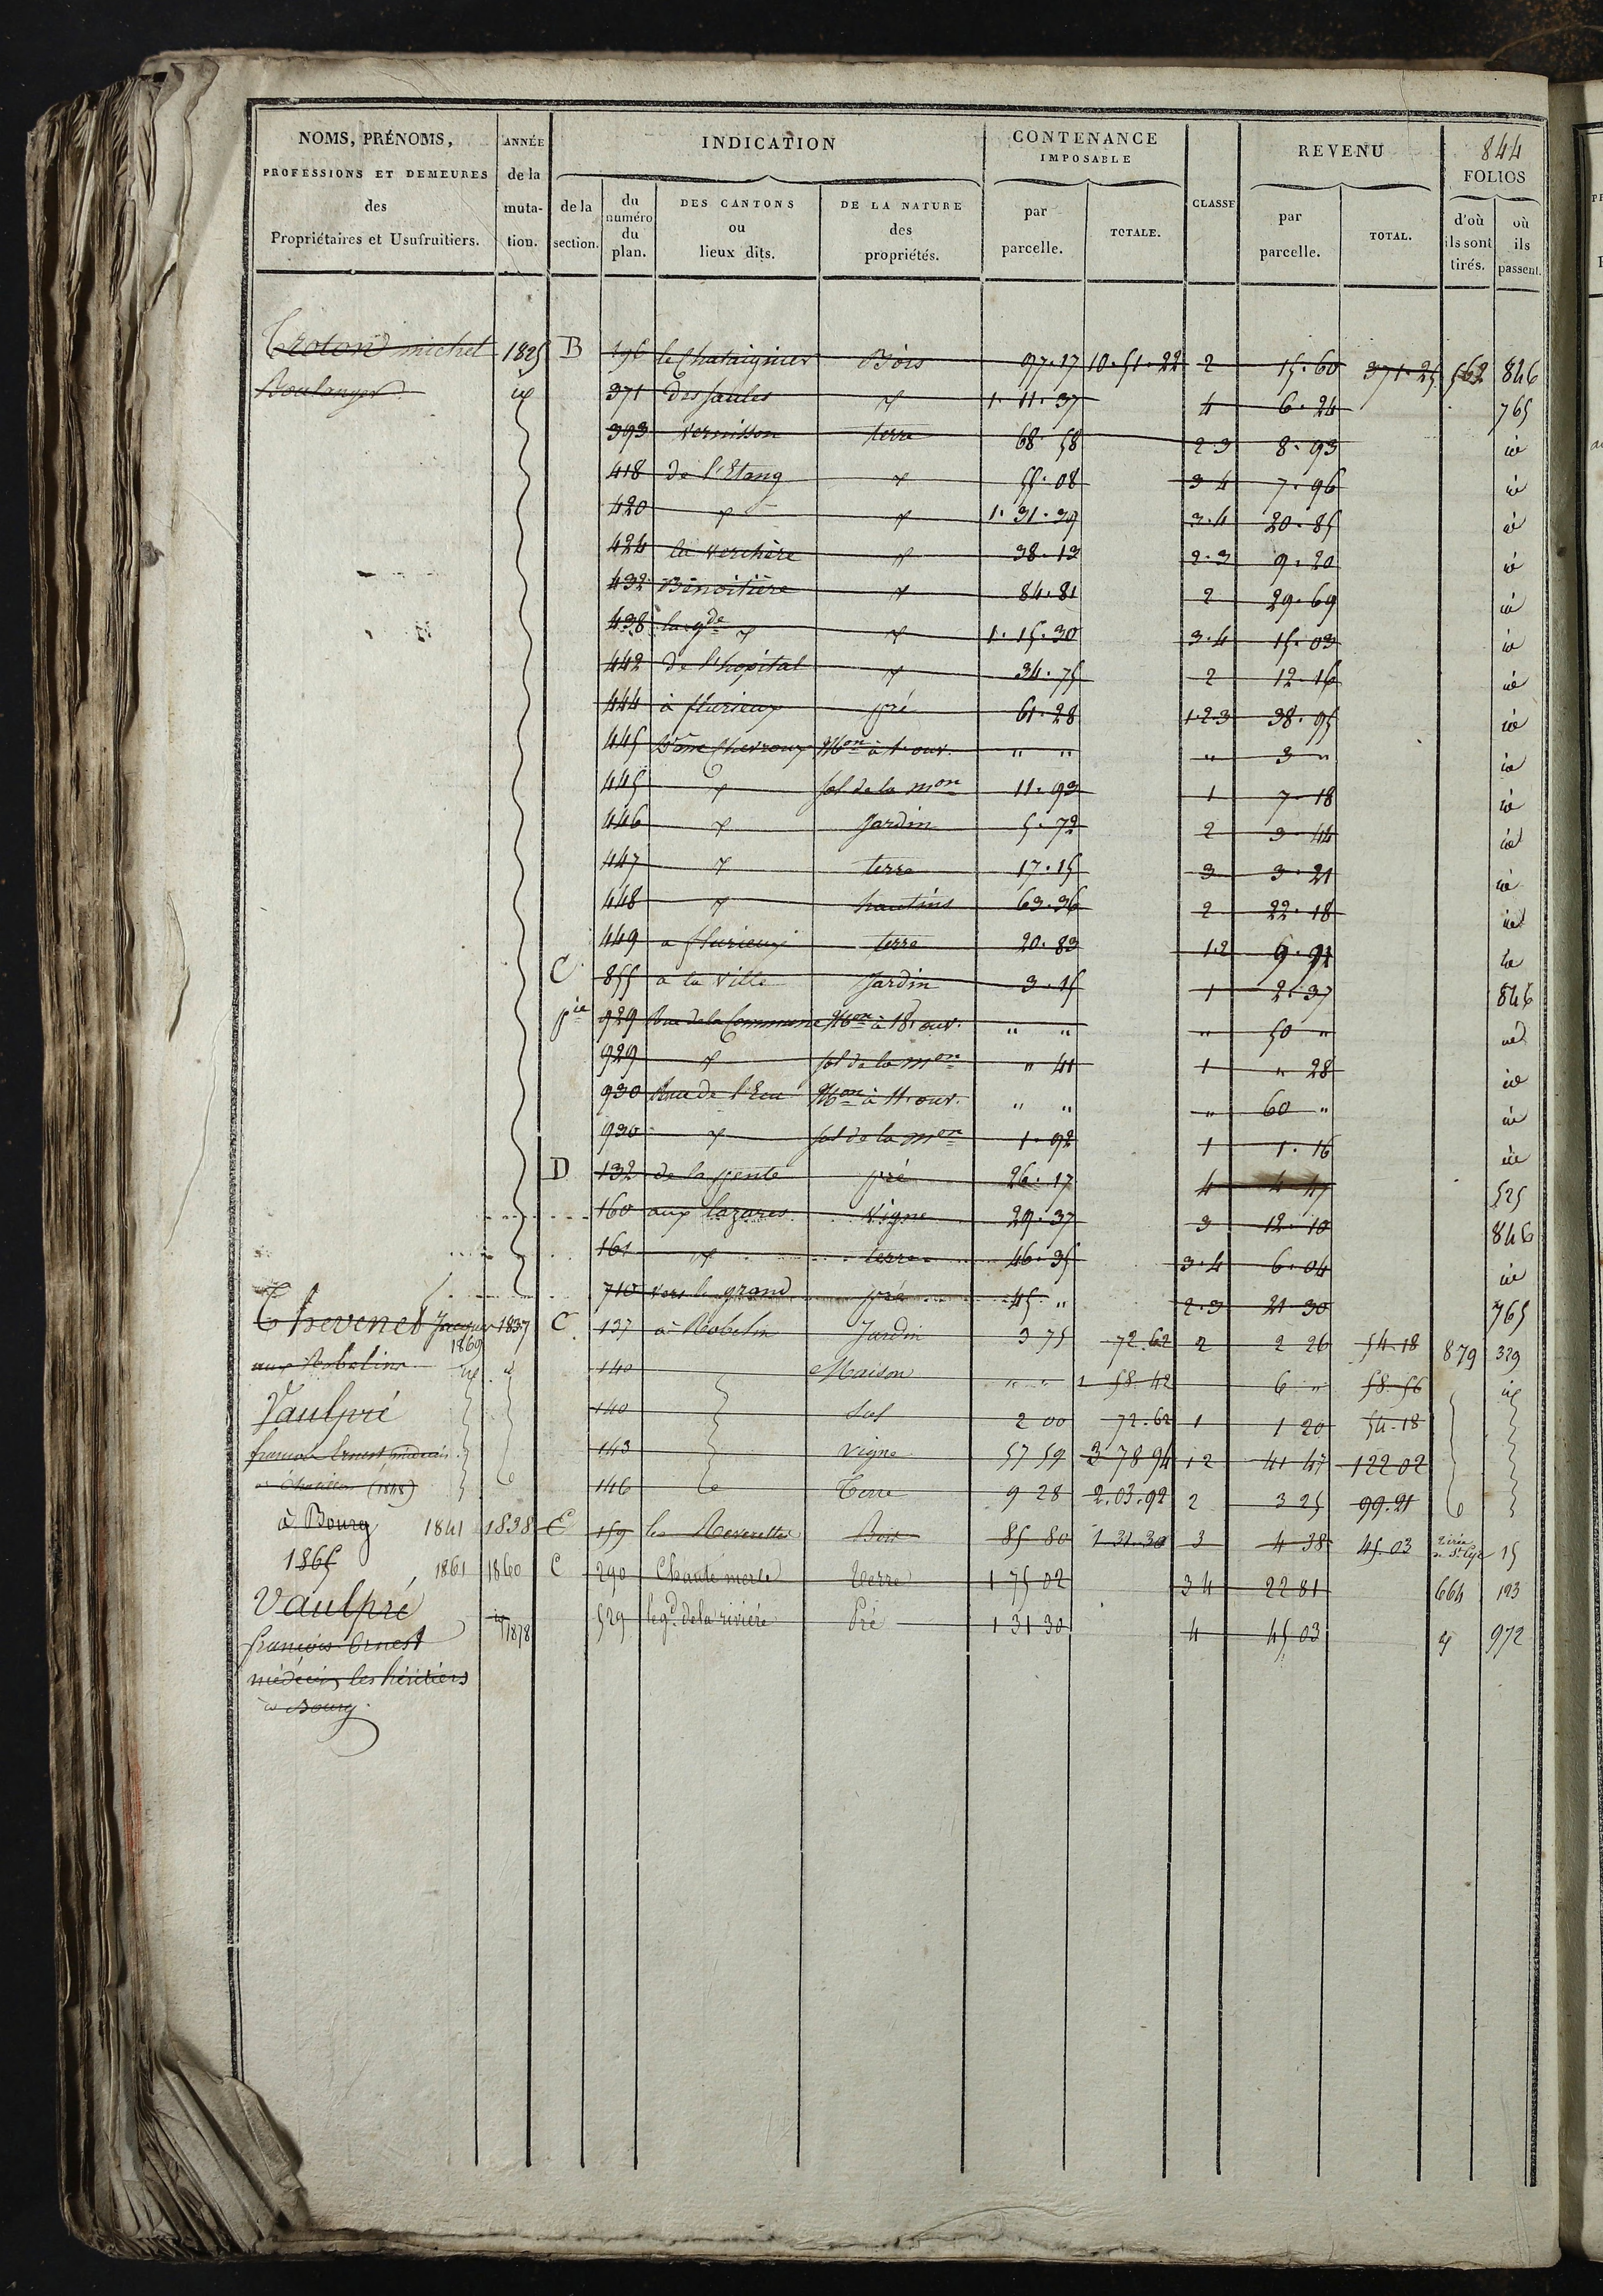 844
NOMS, PRÉNOMS, PROFESSIONS ET DEMEURES des Propriétaires et Usufruitiers.
ANNÉE de la mutation.
INDICATION
de la section.
du numéro du plan.
DES CANTONS ou lieux dits.
DE LA NATURE des propriétés.
CONTENANCE IMPOSABLE
par parcelle.
TOTALE.
CLASSE
REVENU
par parcelle.
TOTAL.
FOLIOS
d'où ils sont tirés.
où ils passent.
michel 1825 B 196 le Chataignier Bois 97.17 10.51.22 2 15.60 371.25 562 846
Boulanger 371 des saules 1.11.37 4 6.24 765
393 Vernisson terre 68.58 2.3 8.93
418 de l'Etang 55.08 3 4 7.96
420 1.31.39 3.4 20.85
424 la verchère 38.13 2.3 9.20
432 Benoitière 84.81 2 29.69
438 la gde 1.15.30 3.4 15.03
442 de l'hopital 34.75 2 12.16
444 à flurieux pré 61.28 1.2.3 38.95
445 Mon à 1. ouv. " " " 3 "
445 sol de la mon 11.93 1 7.18
446 Jardin 5.72 2 3.44
447 terre 17.15 3 3.21
448 hautins 63.36 2 22.18
449 a flurieux terre 20.83 1.2 9.91
C 855 à la ville Jardin 3.15 1 2.37 846
pie 929 Rue de la Commune Mon à 18. ouv. " " " 50 "
929 sol de la mon " 41 1 " 28
930 Rue de l'Ecu Mon à 11. ouv. " " " 60 "
930 sol de la mon 1.92 1 1.16
D 132 de la pente pré 26.17 4 4 525
160 aux lazares vigne 29.37 3 12.10 846
161 terre 46.35 3.4 6.04
710 vers le grand pré 45. " 2.3 21 30 765
Thevenet Jacques 1837 C 137 à Robelin Jardin 3 75 72.62 2 2 26 54.18 879 329
1869
aux Robelins 140 Maison " " 1 58 42 6 " 58 56
Vaulpré 140 Sol 2 00 72.62 1 1 20 54.18
francois Ernest médecin 143 vigne 57 59 3 78 94 1 2 41 47 122 02
(1848) 146 Terre 9 28 2.03.92 2 3 25 99.21
à Bourg 1841 1838 E 159 les Bois 85 80 1 31 30 3 4 38 45.03 15
1865 1861 1860 C 290 Chante merle Terre 1 75 02 3 4 22 81 664 193
Vaulpré 1878 529 le gd. de la rivière Pré 1 31 30 4 45 03 972
francois Ernest
médecin les héritiers
à Bourg